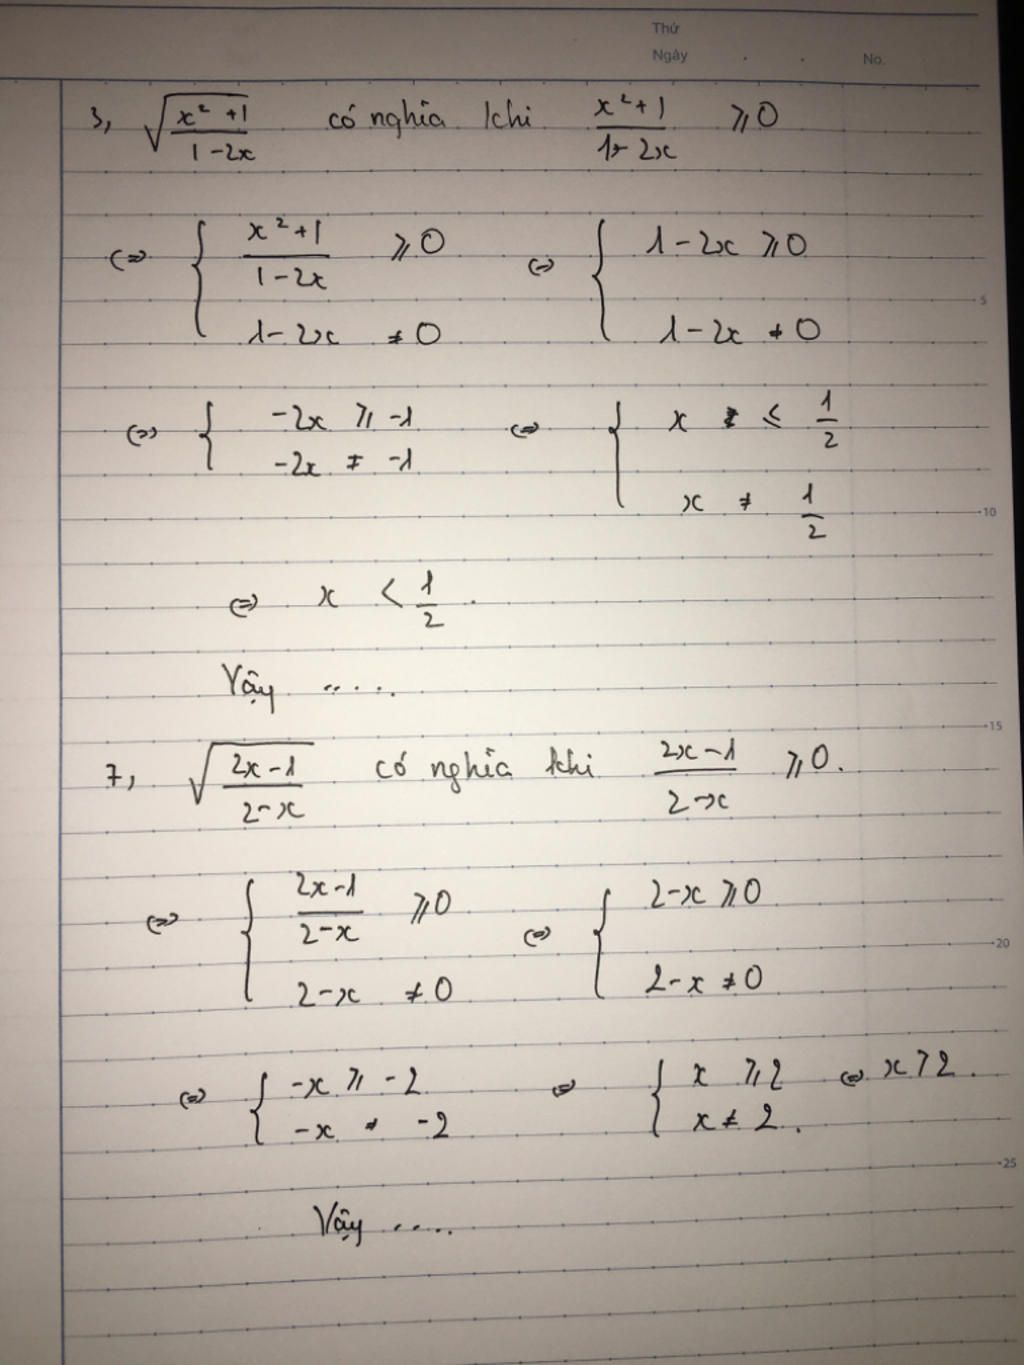 Thứ
Ngày . . No.
3, √((x² + 1)/(1 - 2x)) có nghĩa khi (x² + 1)/(1 - 2x) ⩾ 0
⇔ { (x² + 1)/(1 - 2x) ⩾ 0 ⇔ { 1 - 2x ⩾ 0
5
1 - 2x ≠ 0 1 - 2x ≠ 0
⇔ { -2x ⩾ -1 ⇔ { x ⩽ 1/2
-2x ≠ -1
x ≠ 1/2
10
⇔ x < 1/2 .
Vậy .....
15
7, √((2x - 1)/(2 - x)) có nghĩa khi (2x - 1)/(2 - x) ⩾ 0.
⇔ { (2x - 1)/(2 - x) ⩾ 0 ⇔ { 2 - x ⩾ 0
20
2 - x ≠ 0 2 - x ≠ 0
⇔ { -x ⩾ -2 ⇔ { x ⩾ 2 ⇔ x > 2 .
-x ≠ -2 x ≠ 2 .
25
Vậy .....